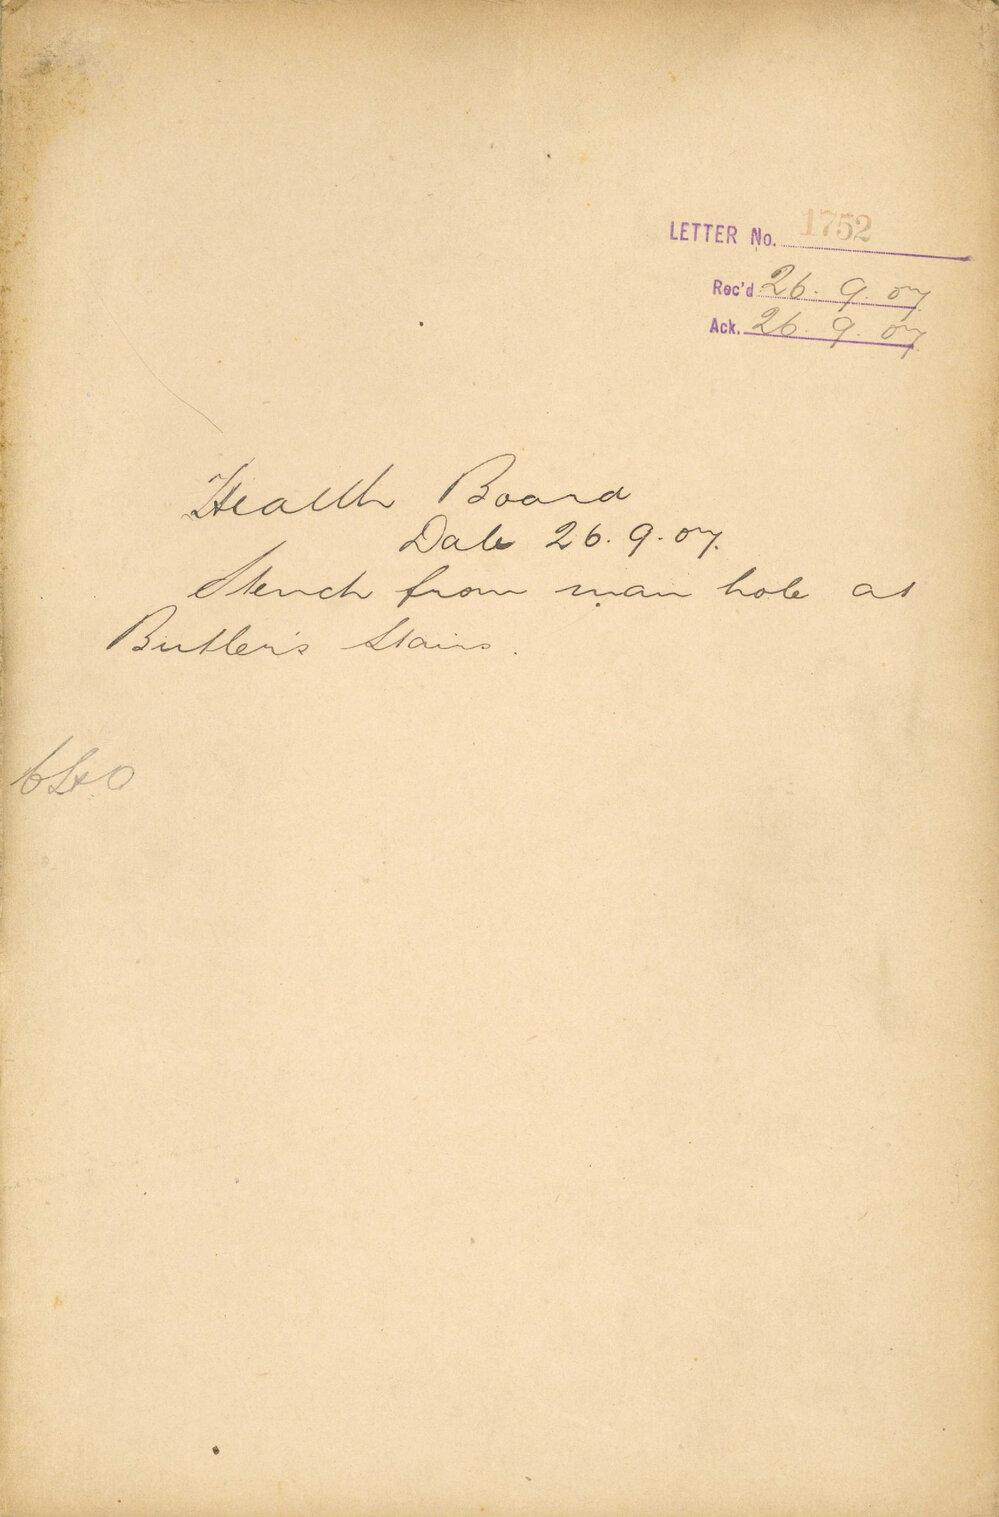 LETTER No. 1752
Rec'd 26. 9. 07
Ack. 26. 9. 07
Health Board
Date 26. 9. 07.
Stench from man hole at
Butler's Stairs.